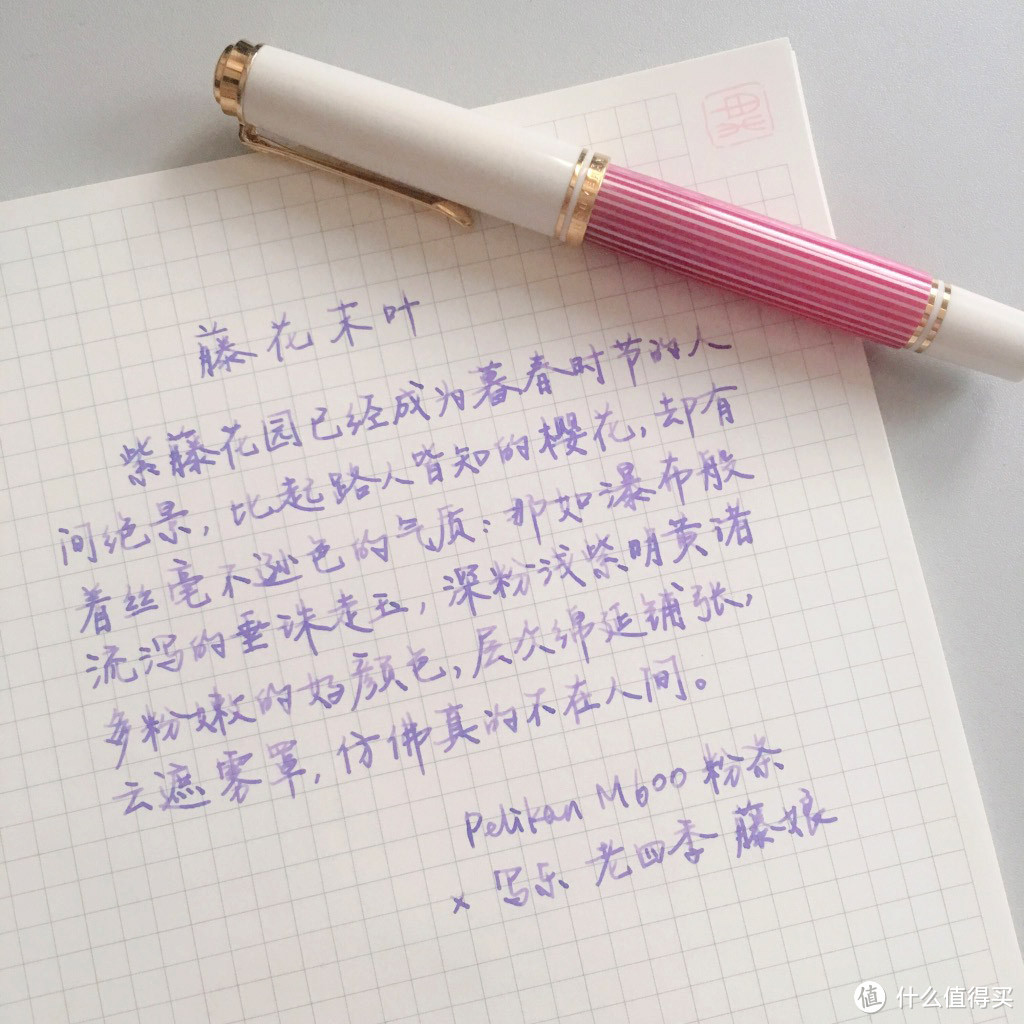 藤花末叶
紫藤花园已经成为暮春时节的人
间绝景，比起路人皆知的樱花，却有
着丝毫不逊色的气质：那如瀑布般
流泻的垂珠走玉，深粉浅紫明黄诸
多粉嫩的好颜色，层次绵延铺张，
云遮雾罩，仿佛真的不在人间。
Pelikan M600 粉条
× 写乐 老四季 藤娘
值 什么值得买